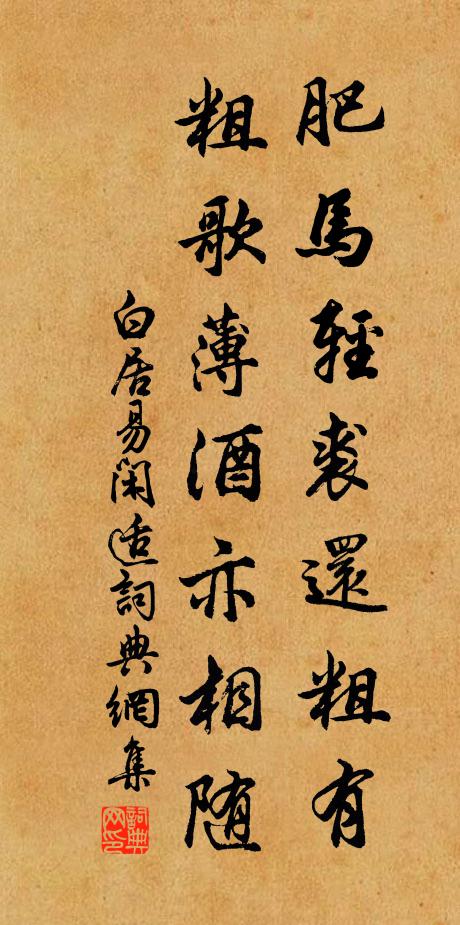 肥馬輕裘還粗有
粗歌薄酒亦相隨
白居易閑适詞典網集
詞典網印